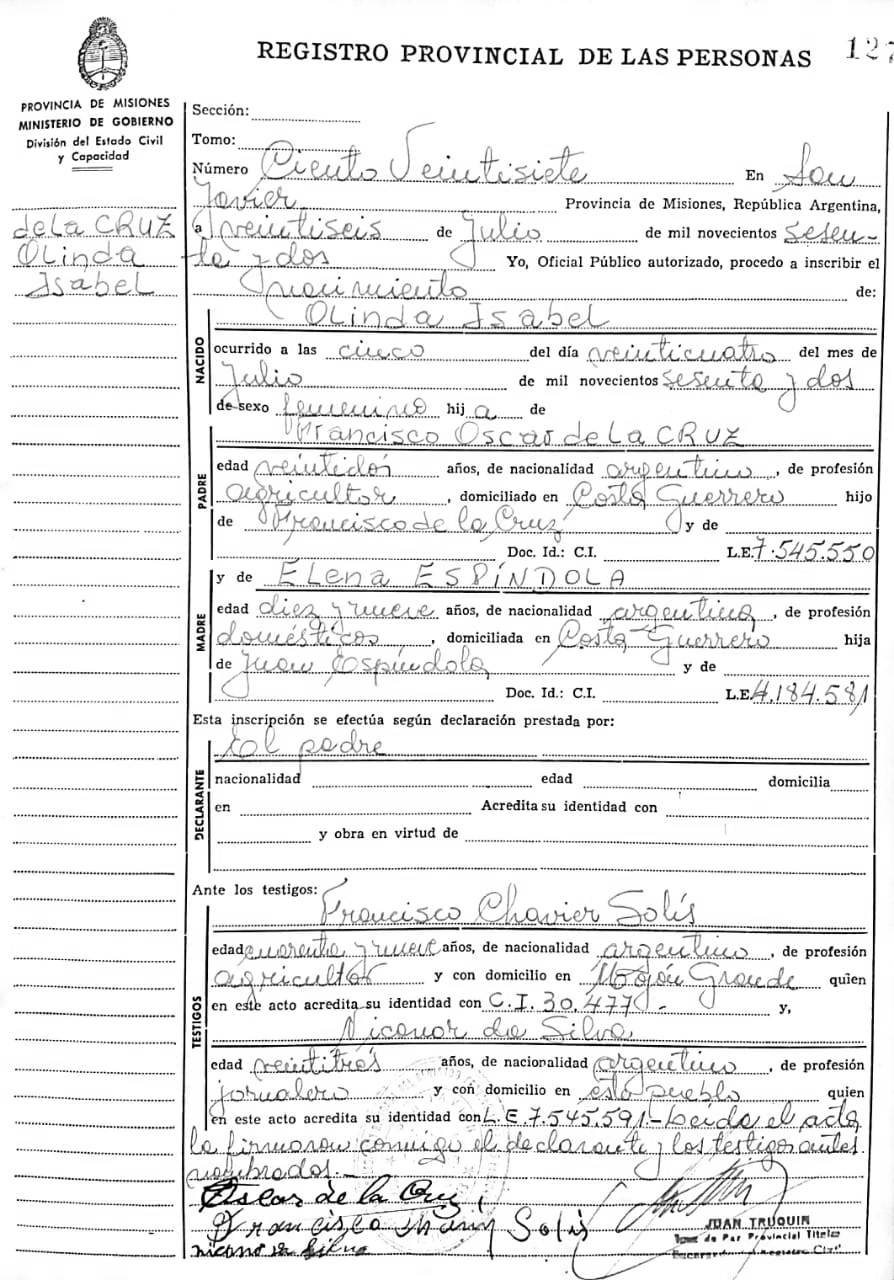 REGISTRO PROVINCIAL DE LAS PERSONAS 127
PROVINCIA DE MISIONES
MINISTERIO DE GOBIERNO
División del Estado Civil
y Capacidad
de la CRUZ
OLinda
Isabel
Sección:
Tomo:
Número Ciento Veintisiete En San
Javier Provincia de Misiones, República Argentina,
a veintiseis de Julio de mil novecientos sesen-
ta y dos Yo, Oficial Público autorizado, procedo a inscribir el
nacimiento de:
NACIDO
OLinda Isabel
ocurrido a las cinco del día veinticuatro del mes de
Julio de mil novecientos sesenta y dos
de sexo femenino hij a de
PADRE
Francisco Oscar de la CRUZ
edad veintidós años, de nacionalidad argentino, de profesión
agricultor, domiciliado en Costa Guerrero hijo
de Francisco de la Cruz y de
Doc. Id.: C.I. L.E. 7.545.550
MADRE
y de ELena ESPÍNDOLA
edad diez y nueve años, de nacionalidad argentina, de profesión
domésticos, domiciliada en Costa Guerrero hija
de Juan Espíndola y de
Doc. Id.: C.I. L.E. 4.184.581
Esta inscripción se efectúa según declaración prestada por:
DECLARANTE
El padre
nacionalidad edad domicilia
en Acredita su identidad con
y obra en virtud de
Ante los testigos:
TESTIGOS
Francisco Chavier Solís
edad cuarenta y nueve años, de nacionalidad argentino, de profesión
agricultor y con domicilio en Mojón Grande quien
en este acto acredita su identidad con C.I. 30.477.- y,
Nicanor da Silva
edad veintitrés años, de nacionalidad argentino, de profesión
jornalero y con domicilio en este pueblo quien
en este acto acredita su identidad con L.E 7.545.591.- Leida el acta
la firmaron conmigo el declarante y los testigos antes
nombrados.-
Oscar de la Cruz
Francisco Solis
nicanor da silva
JUAN TRUQUIN
Juez de Paz Provincial Titular